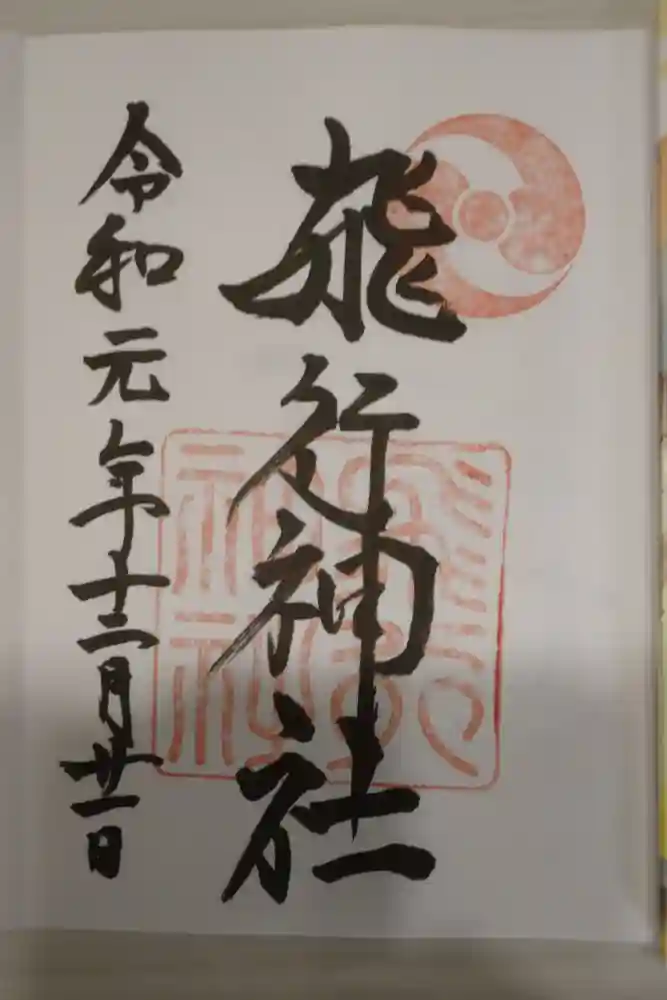 飛行神社
令和元年十二月廿一日